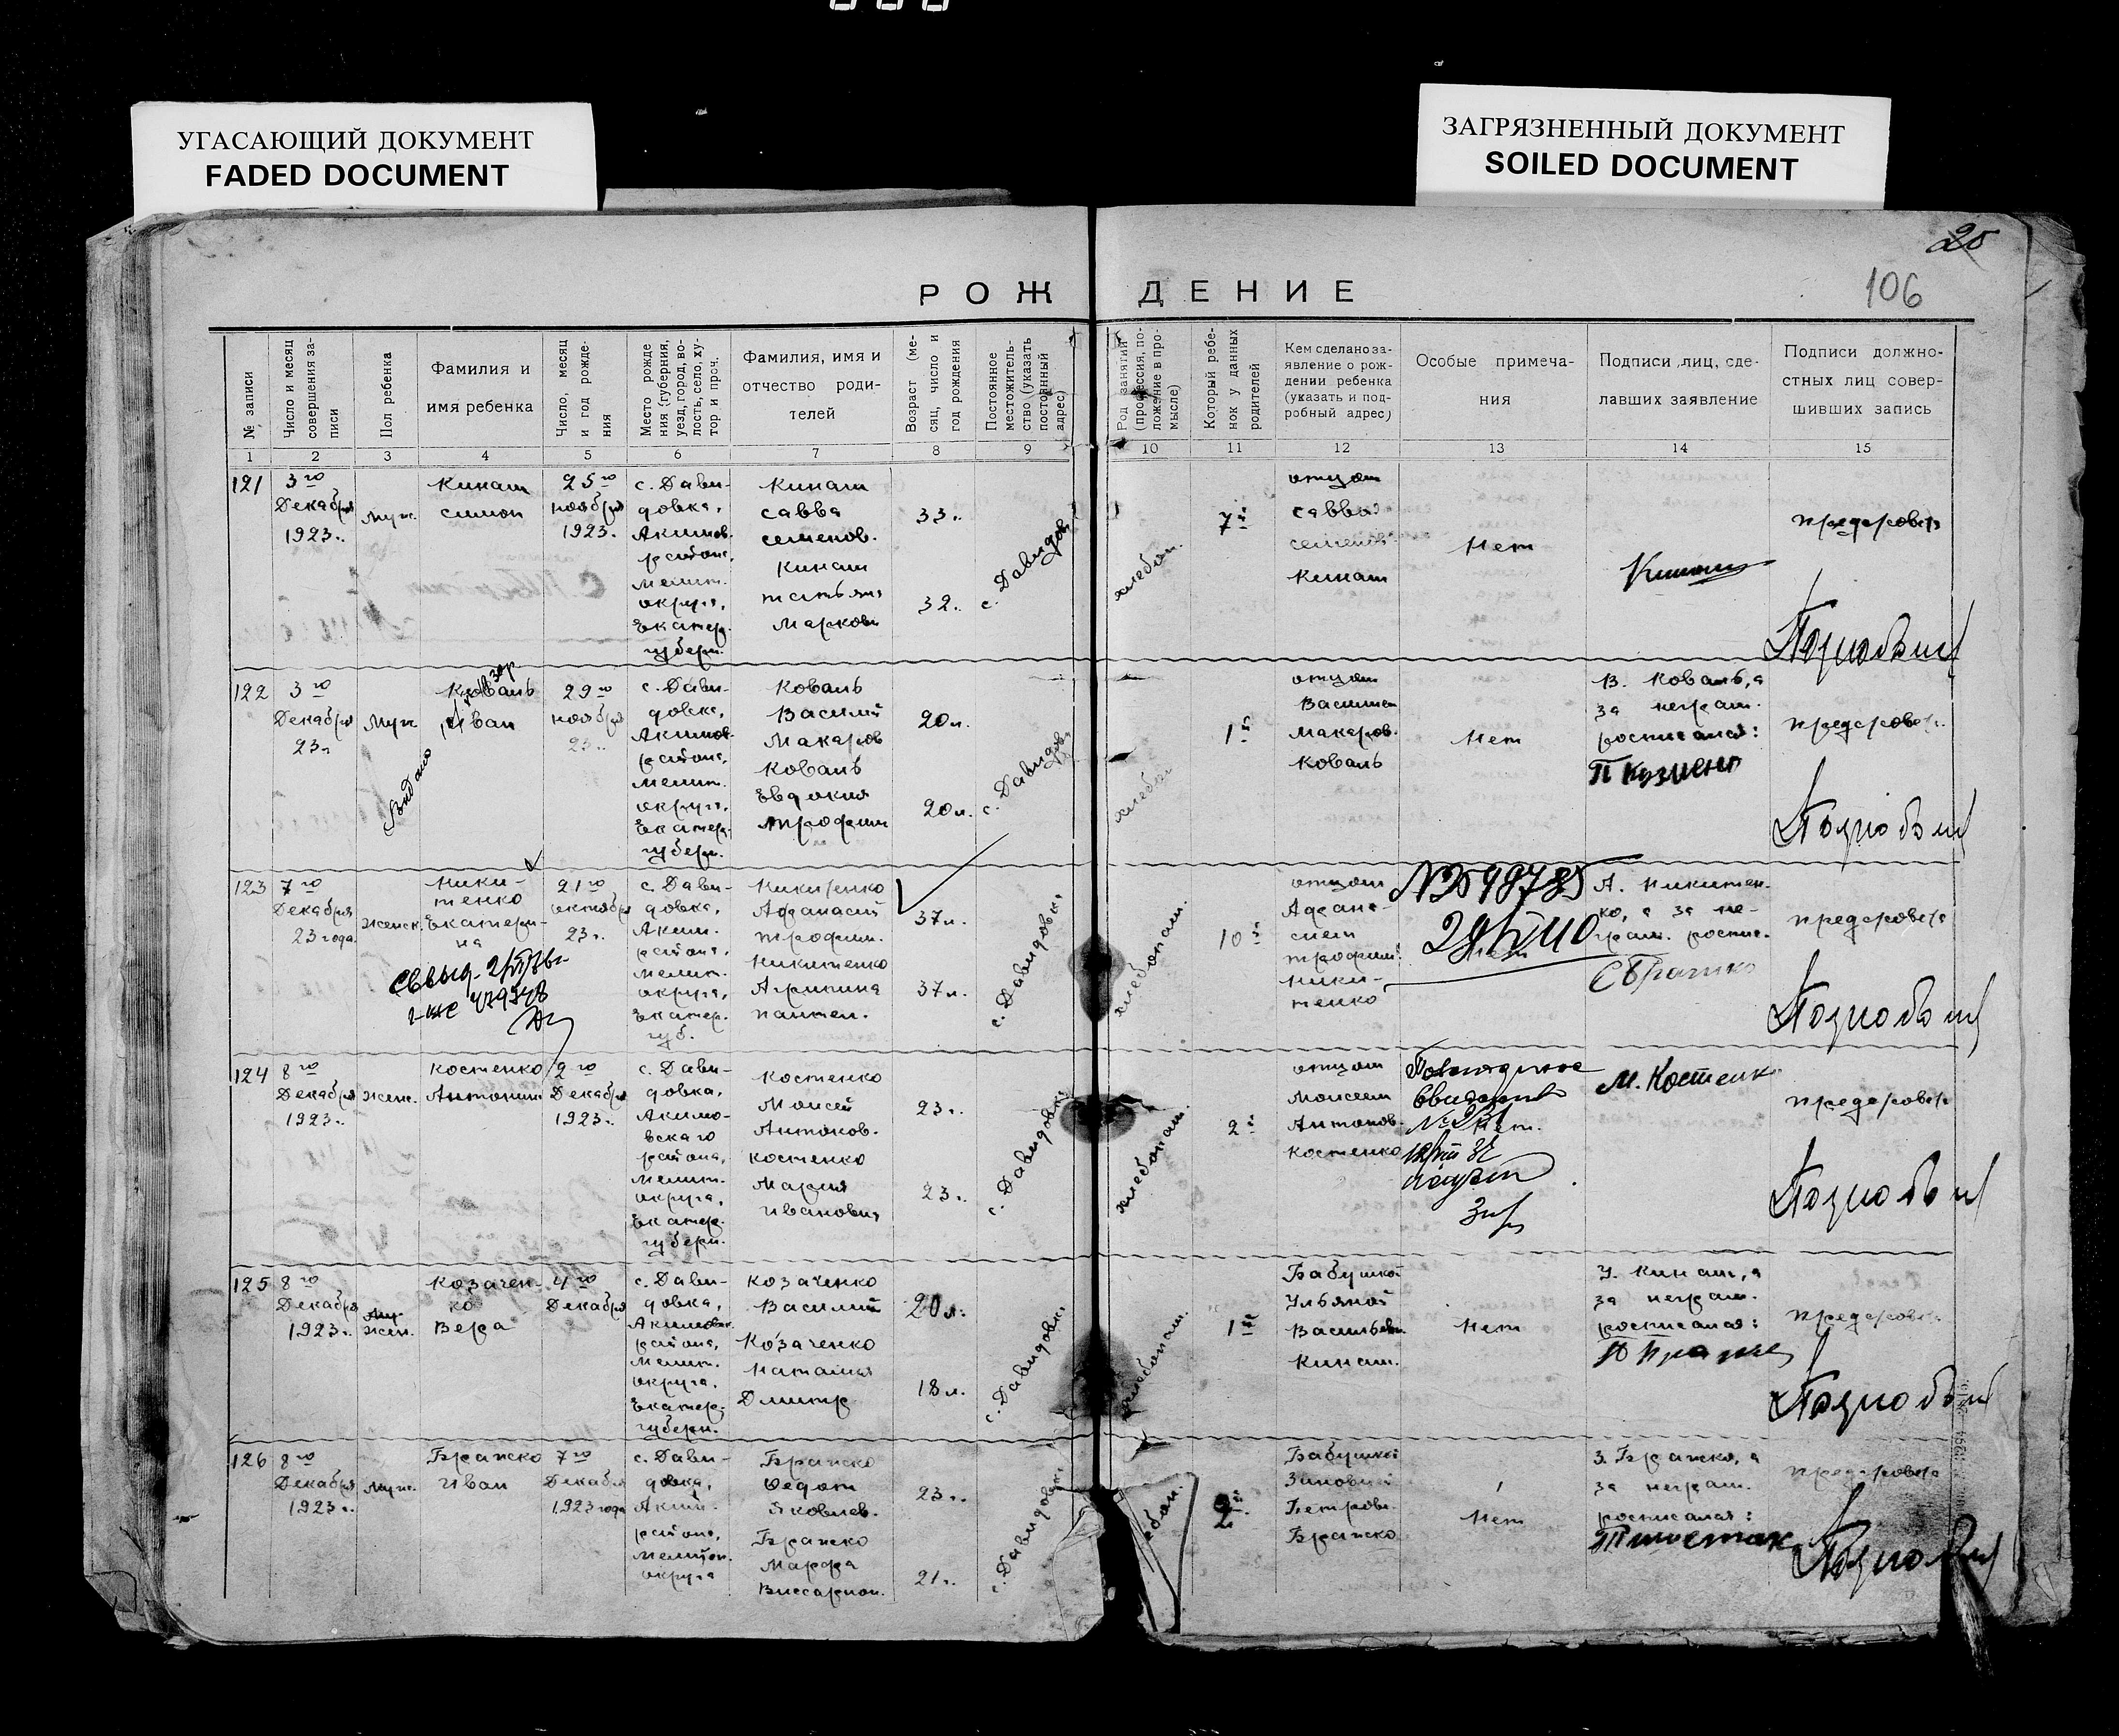 УГАСАЮЩИЙ ДОКУМЕНТ
FADED DOCUMENT
ЗАГРЯЗНЕННЫЙ ДОКУМЕНТ
SOILED DOCUMENT
20
106
РОЖДЕНИЕ
№ записи
Число и месяц
совершения за-
писи
Пол ребенка
Фамилия и
имя ребенка
Число, месяц
и год рожде-
ния
Место рожде
ния (губерния,
уезд, город, во-
лость, село, ху-
тор и проч.
Фамилия, имя и
отчество роди-
телей
Возраст (ме-
сяц, число и
год рождения
Постоянное
местожитель-
ство (указать
постоянный
адрес)
Род занятий
(профессия, по-
ложение в про-
мысле)
Который ребе-
нок у данных
родителей
Кем сделано за-
явление о рож-
дении ребенка
(указать и под-
робный адрес)
Особые примеча-
ния
Подписи лиц, сде-
лавших заявление
Подписи должно-
стных лиц совер-
шивших запись
1 2 3 4 5 6 7 8 9 10 11 12 13 14 15
121
3го
Декабря
1923г.
Муж.
Кинаш
Симон
25го
ноября
1923г.
с. Дави-
довка,
Акимов.
района,
мелит.
округа,
Екатер.
губерн.
Кинаш
Савва
семенов.
Кинаш
Татьяна
Маркови
33г.
32г.
с. Давидов
хлебоп.
7й
отцом
Саввой
семенов.
Кинаш
Нет
Кинаш
предсровет
122
3го
Декабря
23г.
Муж.
Коваль
Иван
Видано
29го
ноября
23г.
с. Дави-
довка,
Акимов.
района,
мелит.
округа,
Екатер.
губерн.
Коваль
Василий
Макаров
Коваль
Евдокия
Трофим
20л.
20л.
с. Давидов
хлебоп
1й
отцом
Василием
Макаров.
Коваль
Нет
В. Коваль, а
за неграм.
росписался:
П Кузменко
123
7го
Декабря
23 года
женск.
Ники-
тенко
Екатери-
на
21го
октября
23г.
с. Дави-
довка,
Аким.
района,
мелит.
округа,
Екатер.
губ.
Никитенко
Афанасий
Трофим.
Никитенко
Агрипина
Пантел.
37л.
37л.
с. Давидовка
хлебопаш.
10й
отцом
Афана-
сием
Трофим.
Ники-
тенко
А. Никитен-
ко, а за не-
грам. роспис.
124
8го
Декабря
1923г.
жен.
Костенко
Антонина
2го
Декабря
1923г.
с. Дави-
довка,
Акимо-
вского
района,
мелит.
округа,
Екатер.
губерн.
Костенко
Моисей
Антонов.
Костенко
Мария
Ивановна
23г.
23г.
с. Давидовка
хлебопаш.
2й
отцом
Моисеем
Антонов.
Костенко
М. Костенко
125
8го
Декабря
1923г.
жен.
Козачен-
ко
Вера
4го
Декабря
с. Дави-
довка,
Акимов.
района,
мелит.
округа,
Екатер.
губерн.
Козаченко
Василий
Козаченко
Наталья
Дмитр
20л.
18л.
с. Давидовка
хлебопаш.
1й
Бабушкой
Ульяной
Васильевн
Кинаш.
Нет
У. Кинаш, а
за неграм.
росписался:
126
8го
Декабря
1923г.
Муж.
Бражко
Иван
7го
Декабря
1923 года
с. Дави-
довка,
Аким.
района,
мелитоп.
округа
Бражко
Федот
Яковлев.
Бражко
Марфа
Виссарион.
23г.
21г.
с. Давидовка
2й
Бабушкой
Зиновией
Петровн.
Бражко
Нет
З. Бражко, а
за неграм.
росписался: